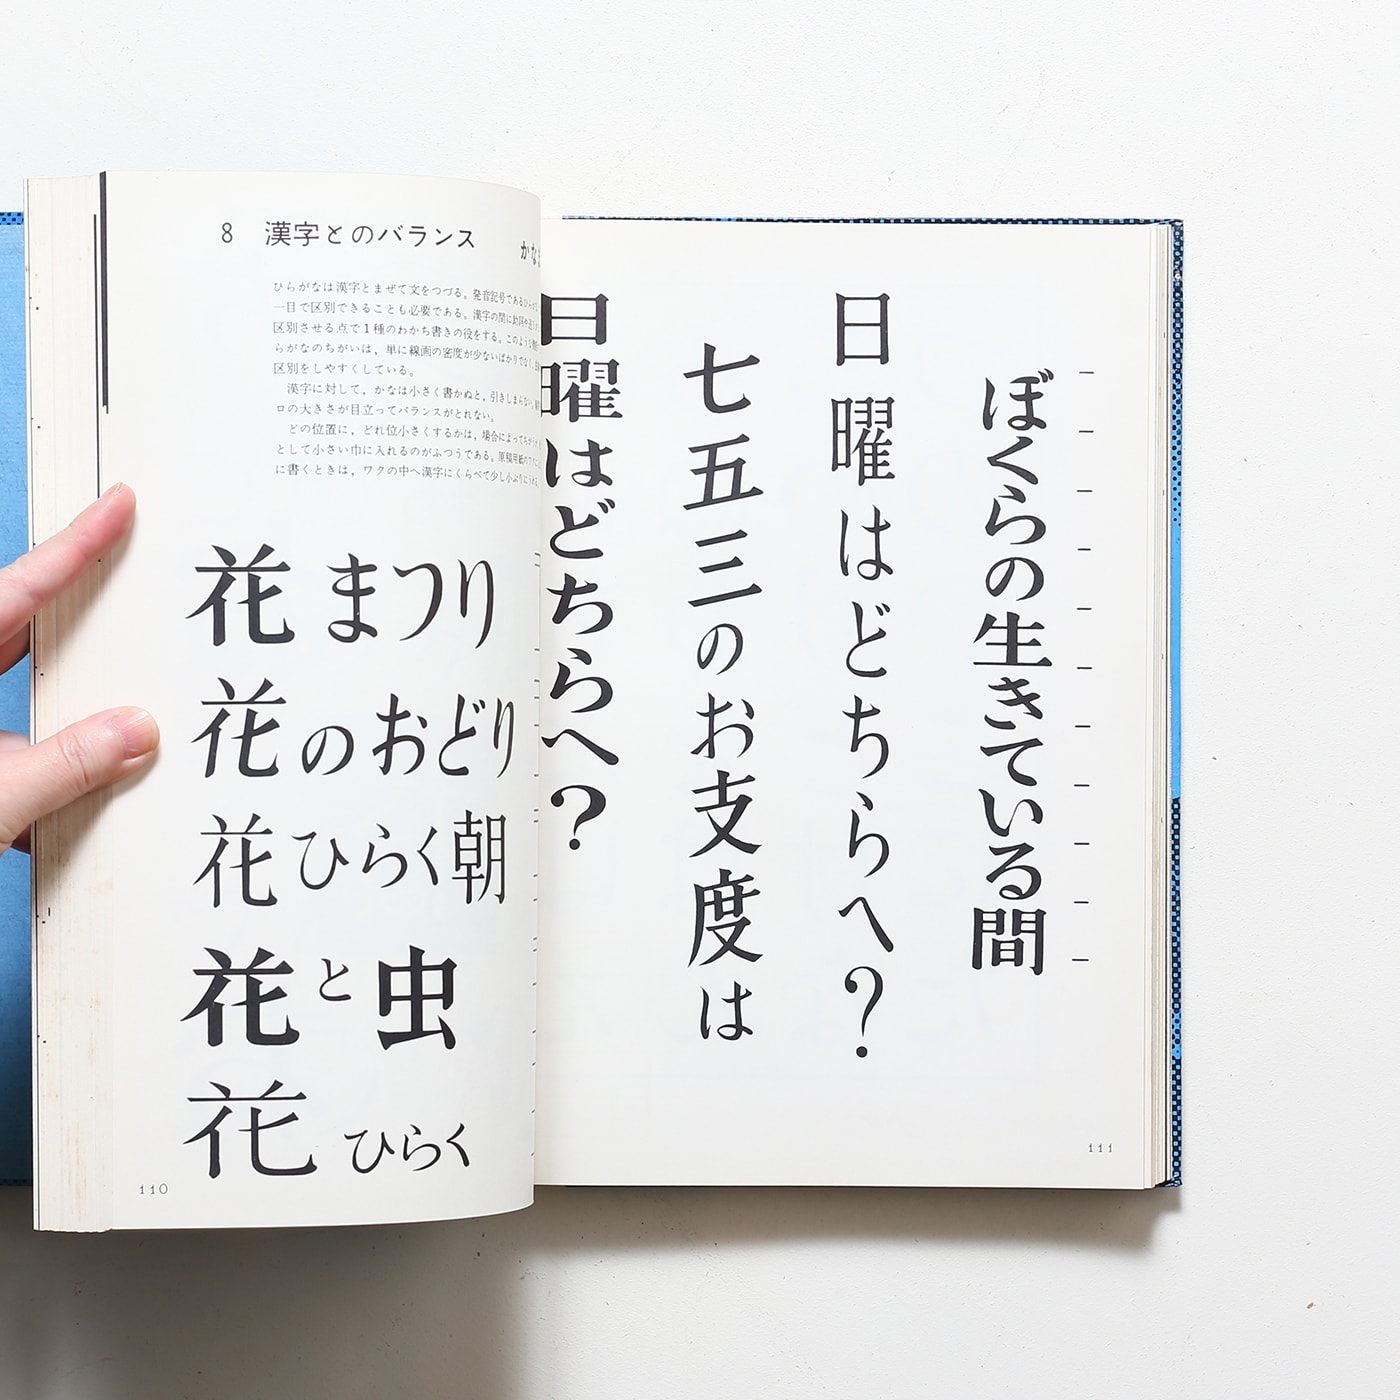 8 漢字とのバランス
かな
ひらがなは漢字とまぜて文をつづる。発音記号であるひら
一目で区別できることも必要である。漢字の間に助詞や
区別させる点で1種のわかち書きの役をする。このような
らがなのちがいは，単に線画の密度が少ないばかりでなく，
区別をしやすくしている。
漢字に対して，かなは小さく書かぬと，引きしまらない。
ロの大きさが目立ってバランスがとれない。
どの位置に，どれ位小さくするかは，場合によってちがうが，
として小さい巾に入れるのがふつうである。原稿用紙の
に書くときは，ワクの中へ漢字にくらべて少し小ぶりに
花まつり
花のおどり
花ひらく朝
花と虫
花ひらく
110
ぼくらの生きている間
日曜はどちらへ？
七五三のお支度は
日曜はどちらへ？
111